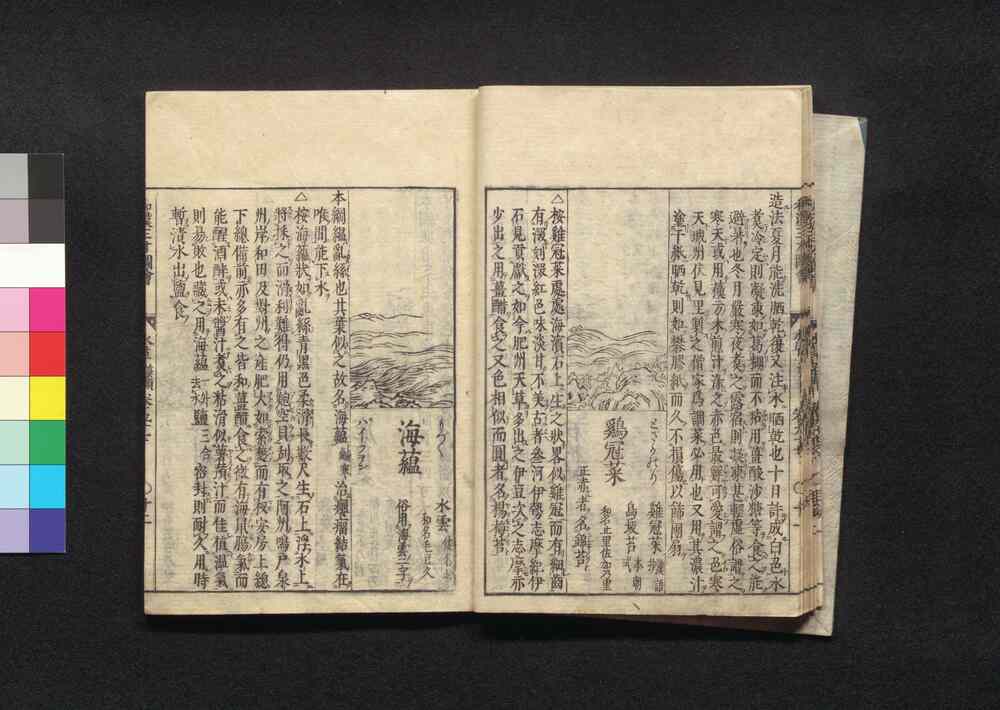 造法夏月能洗晒乾復又注水晒乾也十日許成白色水
煮冷定則凝凍如葛糊而不粘用薑酸沙糖等食之能
避暑也冬月嚴寒夜煑之露宿則凝凍甚輕虛俗謂之
寒天或用蘇方木煎汁染之赤色最鮮可愛謂之色寒
天城州伏見里製之僧家爲調菜必用也又用其濃汁
塗于紙晒乾則如礬膠紙而久不損傷以飾團扇
とさかのり
鷄冠菜
雞冠菜
鳥坂苔 本朝式
和名止里佐加乃里
正赤者名錦苔
△按雞冠菜處處海濱石上生之狀畧似雞冠而有細齒
有深刻深紅色味淡甘不美古者參河伊勢志摩紀伊
石見貢獻之如今肥州天草多出之伊豆次之志摩亦
少出之用薑醋食之又色相似而圓者名楊梅苔
もづく
海蘊
水雲
和名毛豆久
俗用海雲二字
本綱縕亂絲也其葉似之故名海蘊 鹹寒 治癭瘤結氣在
喉間能下水
△按海蘊狀如亂絲青黑色柔滑長數尺生石上浮水上
將採之而滑利難得仍用鮑空貝刮取之
州岸和田及對州之産肥大如索麪而有枝安房上總
下總備前亦多有之皆和薑醋食之微有海鼠腸氣而
能醒酒醉或未醬汁煮之粘滑似薯蕷汁而佳値溫氣
則易敗也藏之用海蘊一斗鹽三合密封則耐久用時
暫漬水出鹽食